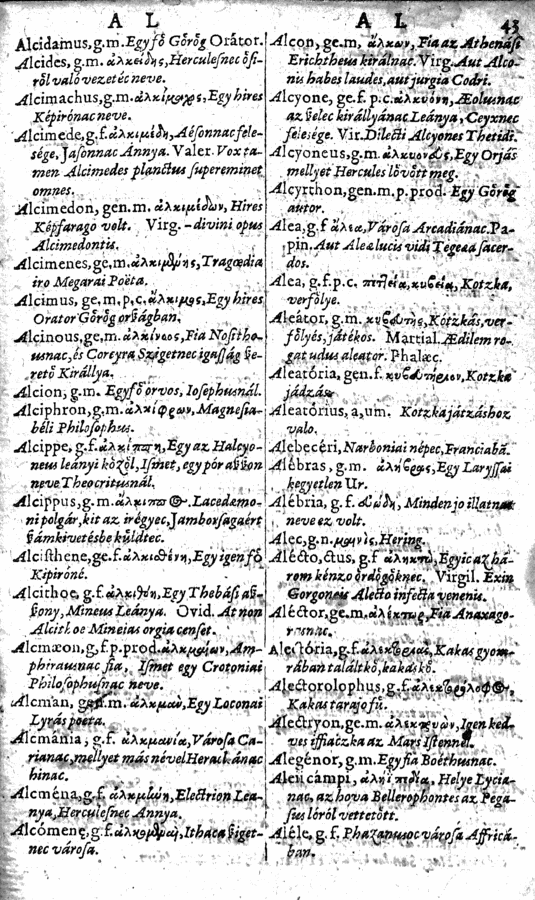 A L
Alcidamus, g.m. Egy fő Gőrőg Orátor.
Alcides, g.m. ἀλκείδης, Herculesnec ősi-
ről való vezetéc neve.
Alcimachus, g.m. ἀλκίμαχος, Egy híres
Képirónac neve.
Alcimede, g.f. ἀλκιμέδη, Aésonnac fele-
sége, Jasonnac Annya. Valer. Vox ta-
men Alcimedes planctus supereminet
omnes.
Alcimedon, gen.m. ἀλκιμέδων, Hires
Képfarago volt. Virg. - divini opus
Alcimedontis.
Alcimenes, ge,m. ἀλκιμένης, Tragœdia
iro Megarai Poëta.
Alcimus, ge, m, p, c. ἄλκιμος, Egy hires
Orator Gőrőg orßágban.
Alcinous, ge, m. ἀλκίνοος, Fia Nositho-
usnac, és Corcyra Szigetnec igasság ße-
rető Királlya.
Alcion, g.m. Egy fő orvos, Iosephusnál.
Alciphron, g,m. ἀλκίφρων, Magnesia-
béli Philosophus.
Alcippe, g.f. ἀλκίππη, Egy az Halcyo-
neus leányi kőzől, Ismet, egy pór aßßon
neve Theocritusnál.
Alcippus, g.m. ἄλκιππος. Lacedæmo-
ni polgár, kit az irégyec, Jamborságaért
ßámkivetésbe küldtec.
Alcisthene, ge.f. ἀλκισθένη, Egy igen fő
Kipiróné.
Alcithoe, g.f. ἀλκιθόη, Egy Thebási aß-
ßony, Mineus Leánya. Ovid. At non
Alcithoe Mineias orgia censet.
Alcmæon, g,f. p.prod. ἀλκμαίων, Am-
phirausnac fia, Ismet egy Crotoniai
Philosophusnac neve.
Alcman, gen.m. ἀλκμαν, Egy Loconai
Lyrás poeta.
Alcmánia, g.f. ἀλκμανία, Városa Ca-
rianac, mellyet más névelHeraclanac
hinac.
Alcména, g.f. ἀλκμήνη, Electrion Lea-
nya, Herculesnec Annya.
Alcómenę, g.f. Ithaca ßiget-
nec városa.
A L 43
Alcon, ge.m, ἄλκων, Fia az Athenási
Erichtheus királnac. Virg. Aut Alco-
nis habes laudes, aut jurgia Codri.
Alcyone, ge.f. p.c. ἀλκυόνη, Æolusnac
az ßelec királlyánac Leánya, Ceyxnec
felesége. Vir. Dilecti Alcyones Thetidi.
Alcyoneus, g.m. ἀλκυονεύς, Egy Orjás
mellyet Hercules lővőtt meg.
Alcyrthon, gen.m. p. prod. Egy Gőrőg
autor.
Alea, g.f ἄλεα, Városa Arcadiánac. Pa-
pin. Aut Aleæ lucis vidi Tegeæa sacer-
dos.
Alea, g.f.p.c. πεττεία, κυβεία, Kotzka,
verfőlye.
Aleátor, g.m. κυβευτής, Kótzkás, ver-
főlyés, játékos. Martial. Ædilem ro-
gat udus aleator. Phalæc.
Aleatória, gen.f. κυβευτήριον, Kotzka
játzás
Aleatórius, a, um. Kotzka játzáshoz
való.
Alebecéri, Narboniai népec, Franciabã.
Alébras, g.m. Egy Laryssai
kegyetlen Ur.
Alébria, g.f. Minden jo illatnac
neve ez volt.
Alec, g.n. μαινὶς, Hering.
Alécto, ctus, g.f ἀληκτὼ, Egyic az há-
rom kénzo őrdőgőknec. Virgil. Exin
Gorgoneis Alecto infecta venenis.
Aléctor, ge.m, ἀλέκτωρ, Fia Anaxago-
rasnac.
Alectória, g.f. Kakas gyom-
rában találtkő, kakaskő.
Alectorolophus, g.f. ἀλεκτορόλοφος,
Kakas tarajo fü.
Alectryon, ge.m. ἀλεκτρυών, Igen ked-
ves iffiaczka az Mars Istennél.
Alegénor, g.m. Egy fia Boéthusnac.
Aleii campi, ἀλήϊ πεδία, Helye Lycia-
nac, az hova Bellerophontes az Pega-
sus lóról vettetőtt.
Aléle, g.f. Phazanusoc városa Affricá-
ban.